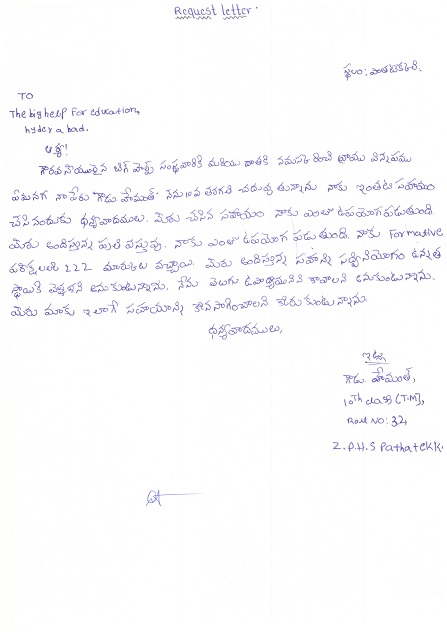 Request letter.
స్థలం: పాతటెక్కలి.
TO
The big help For education,
hyderabad.
ఆర్య!
గౌరవనీయులైన బిగ్ హెల్ప్ సంస్థవారికి మరియు వారికి నమస్కరించి వ్రాయు విన్నపము
ఏమనగా నా పేరు గాడు హేమంత్ నేను 10వ తరగతి చదువుతున్నాను నాకు ఇంతటి సహాయం
చేసినందుకు ధన్యవాదములు. మీరు చేసిన సహాయం నాకు ఎంతో ఉపయోగపడుతుంది.
మీరు అందిస్తున్న ప్రతి వస్తువు. నాకు ఎంతో ఉపయోగ పడుతుంది. నాకు Formative
పరీక్షలలో 222 మార్కులు వచ్చాయి. మీరు అందిస్తున్న సద్వినియోగం ఉన్నత
స్థాయికి అనుకుంటున్నాను. నేను తెలుగు ఉపాధ్యాయుని కావాలని అనుకుంటున్నాను.
మీరు మాకు ఇలాగే సహాయాన్ని కొనసాగించాలని కోరుకుంటున్నాను.
ధన్యవాదములు,
ఇట్లు
గాడు హేమంత్,
10th class (T.M),
Roll NO: 32,
Z.P.H.S Pathatekk